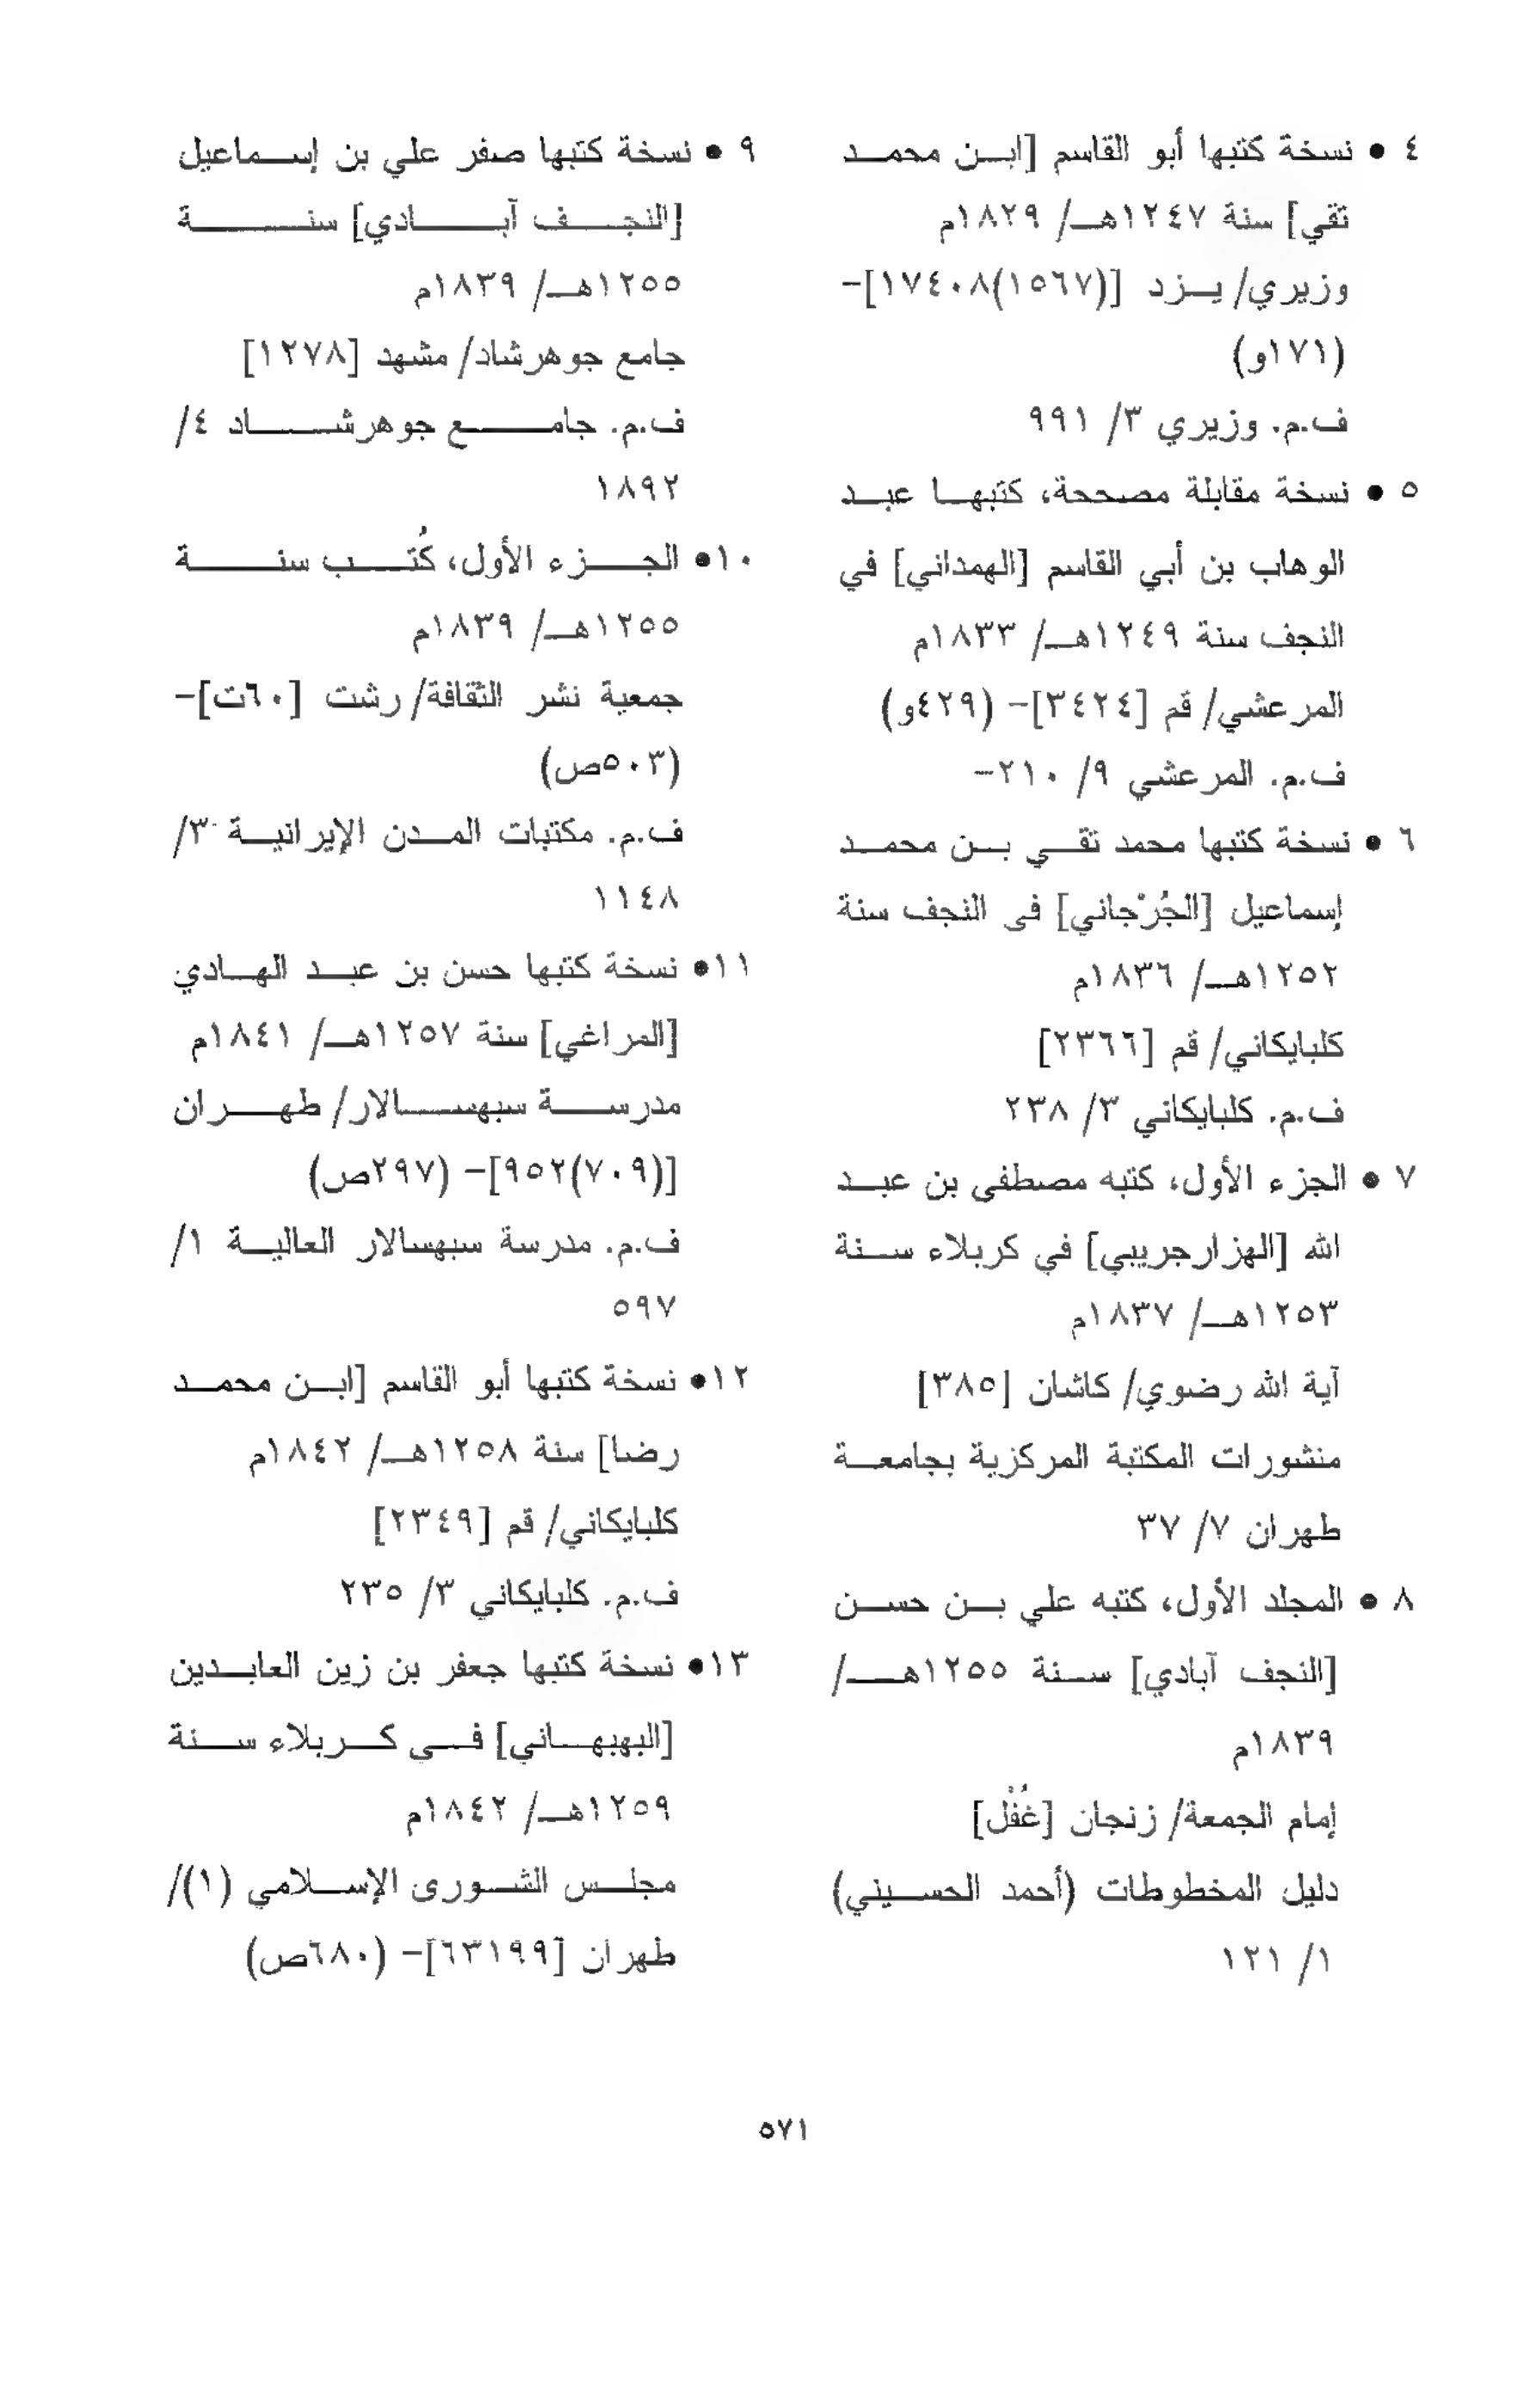 ٤ • نسخة كتبها أبو القاسم [ابن محمد
تقي] سنة ١٢٤٧هـ/ ١٨٢٩م
وزيري/ يزد [(١٥٦٧)١٧٤٠٨]-
(١٧١و)
ف.م. وزيري ٣/ ٩٩١
٥ • نسخة مقابلة مصححة، كتبها عبد
الوهاب بن أبي القاسم [الهمداني] في
النجف سنة ١٢٤٩هـ/ ١٨٣٣م
المرعشي/ قم [٣٤٢٤]- (٤٢٩و)
ف.م. المرعشي ٩/ ٢١٠-
٦ • نسخة كتبها محمد تقي بن محمد
إسماعيل [الجُرْجاني] فى النجف سنة
١٢٥٢هـ/ ١٨٣٦م
كلبايكاني/ قم [٢٣٦٦]
ف.م. كلبايكاني ٣/ ٢٣٨
٧ • الجزء الأول، كتبه مصطفى بن عبد
الله [الهزارجريبي] في كربلاء سنة
١٢٥٣هـ/ ١٨٣٧م
آية الله رضوي/ كاشان [٣٨٥]
منشورات المكتبة المركزية بجامعة
طهران ٧/ ٣٧
٨ • المجلد الأول، كتبه علي بن حسن
[النجف آبادي] سنة ١٢٥٥هـ/
١٨٣٩م
إمام الجمعة/ زنجان [غُفْل]
دليل المخطوطات (أحمد الحسيني)
١/ ١٢١
٩ • نسخة كتبها صفر علي بن إسماعيل
[النجف آبادي] سنة
١٢٥٥هـ/ ١٨٣٩م
جامع جوهرشاد/ مشهد [١٢٧٨]
ف.م. جامع جوهرشاد ٤/
١٨٩٢
١٠• الجزء الأول، كُتب سنة
١٢٥٥هـ/ ١٨٣٩م
جمعية نشر الثقافة/ رشت [٦٠ت]-
(٥٠٣ص)
ف.م. مكتبات المدن الإيرانية ٣/
١١٤٨
١١• نسخة كتبها حسن بن عبد الهادي
[المراغي] سنة ١٢٥٧هـ/ ١٨٤١م
مدرسة سبهسالار/ طهران
[(٧٠٩)٩٥٢]- (٢٩٧ص)
ف.م. مدرسة سبهسالار العالية ١/
٥٩٧
١٢• نسخة كتبها أبو القاسم [ابن محمد
رضا] سنة ١٢٥٨هـ/ ١٨٤٢م
كلبايكاني/ قم [٢٣٤٩]
ف.م. كلبايكاني ٣/ ٢٣٥
١٣• نسخة كتبها جعفر بن زين العابدين
[البهبهاني] في كربلاء سنة
١٢٥٩هـ/ ١٨٤٢م
مجلس الشورى الإسلامي (١)/
طهران [٦٣١٩٩]- (٦٨٠ص)
٥٧١